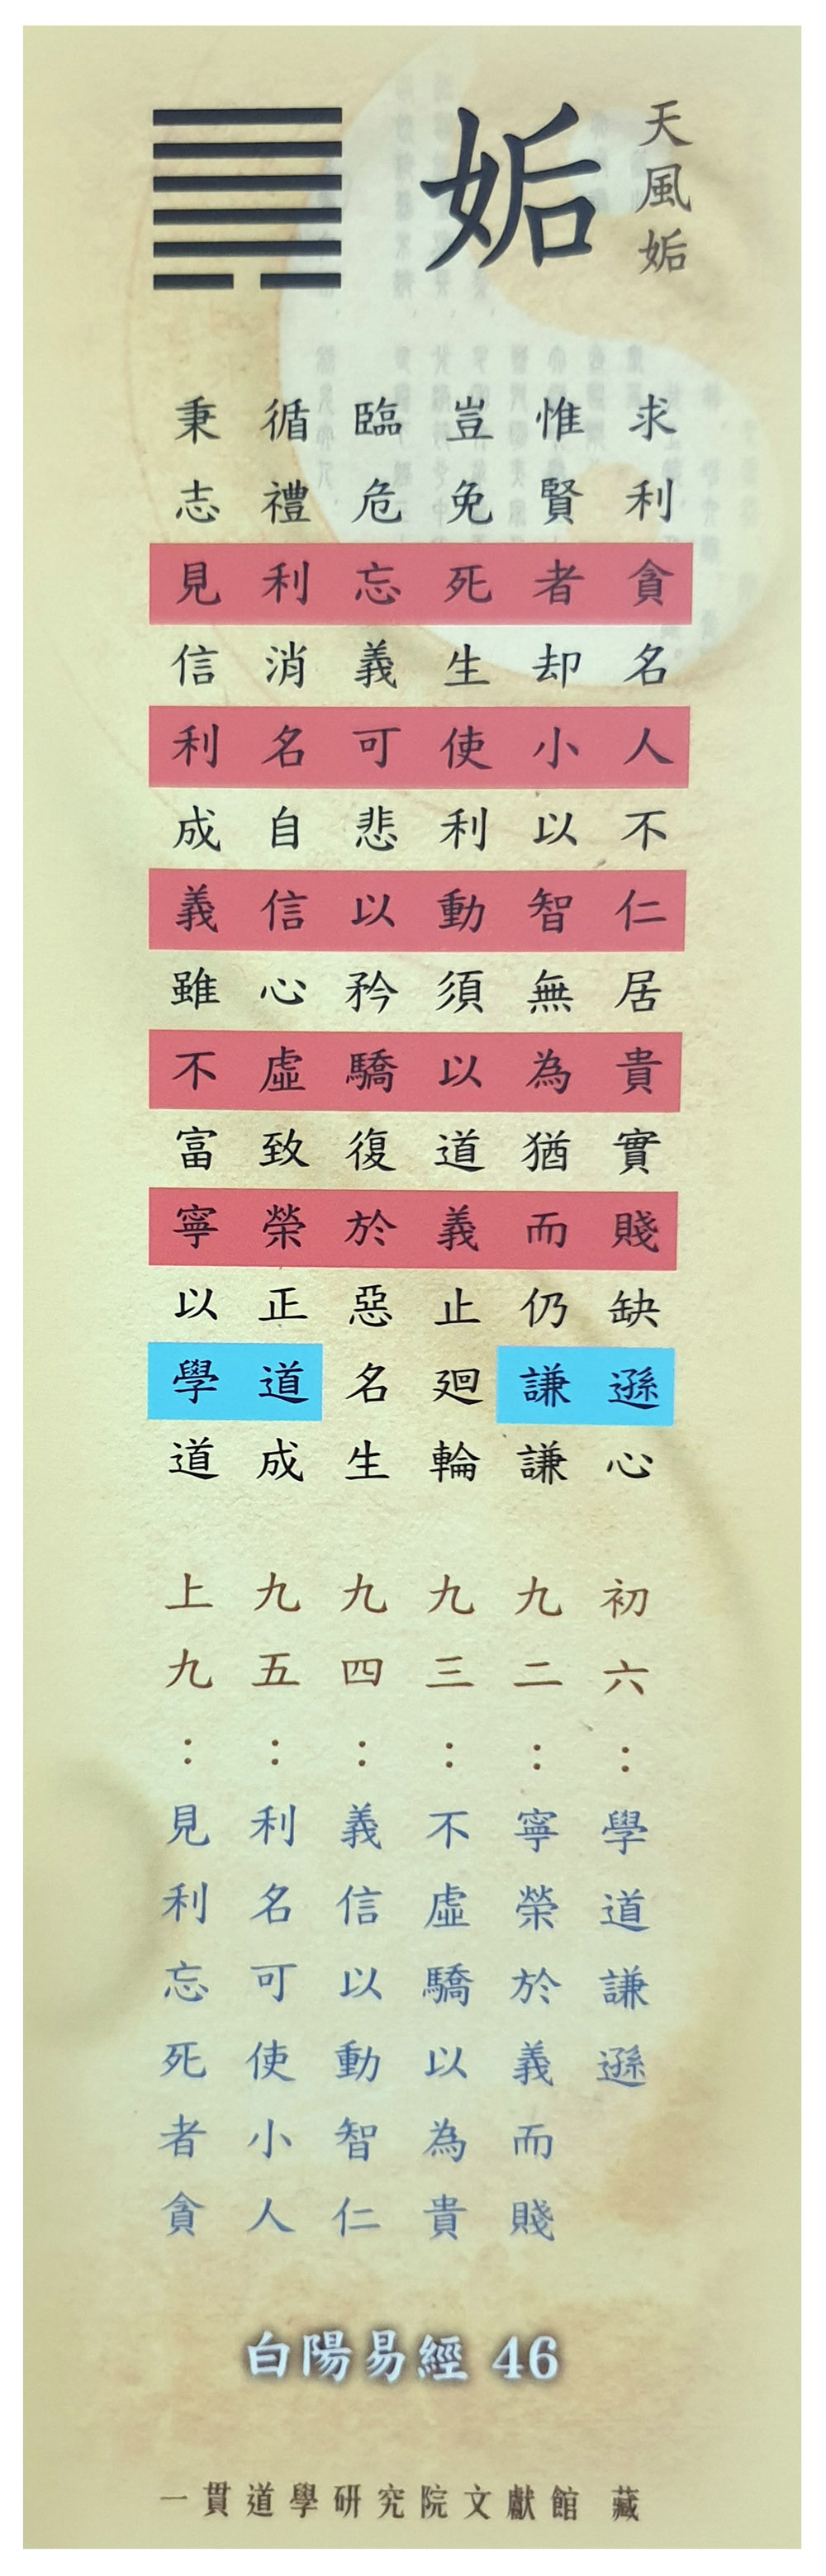 天風姤
姤
求利貪名人不仁居貴實賤缺遜心
惟賢者却小以智無為猶而仍謙謙
豈免死生使利動須以道義止廻輪
臨危忘義可悲以矜驕復於惡名生
循禮利消名自信心虛致榮正道成
秉志見信利成義雖不富寧以學道
初六：學道謙遜
九二：寧榮於義而賤
九三：不虛驕以為貴
九四：義信以動智仁
九五：利名可使小人
上九：見利忘死者貪
白陽易經 46
一貫道學研究院文獻館 藏